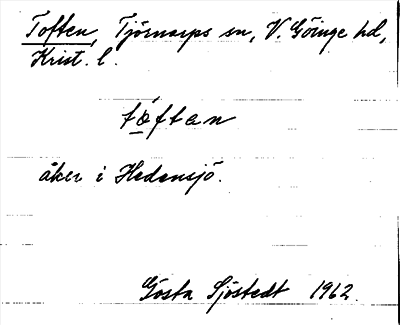 Toften, Tjörnarps sn, V. Göinge hd,
Krist. l.
tóftan
åker i Hedensjö.
Gösta Sjöstedt 1962.